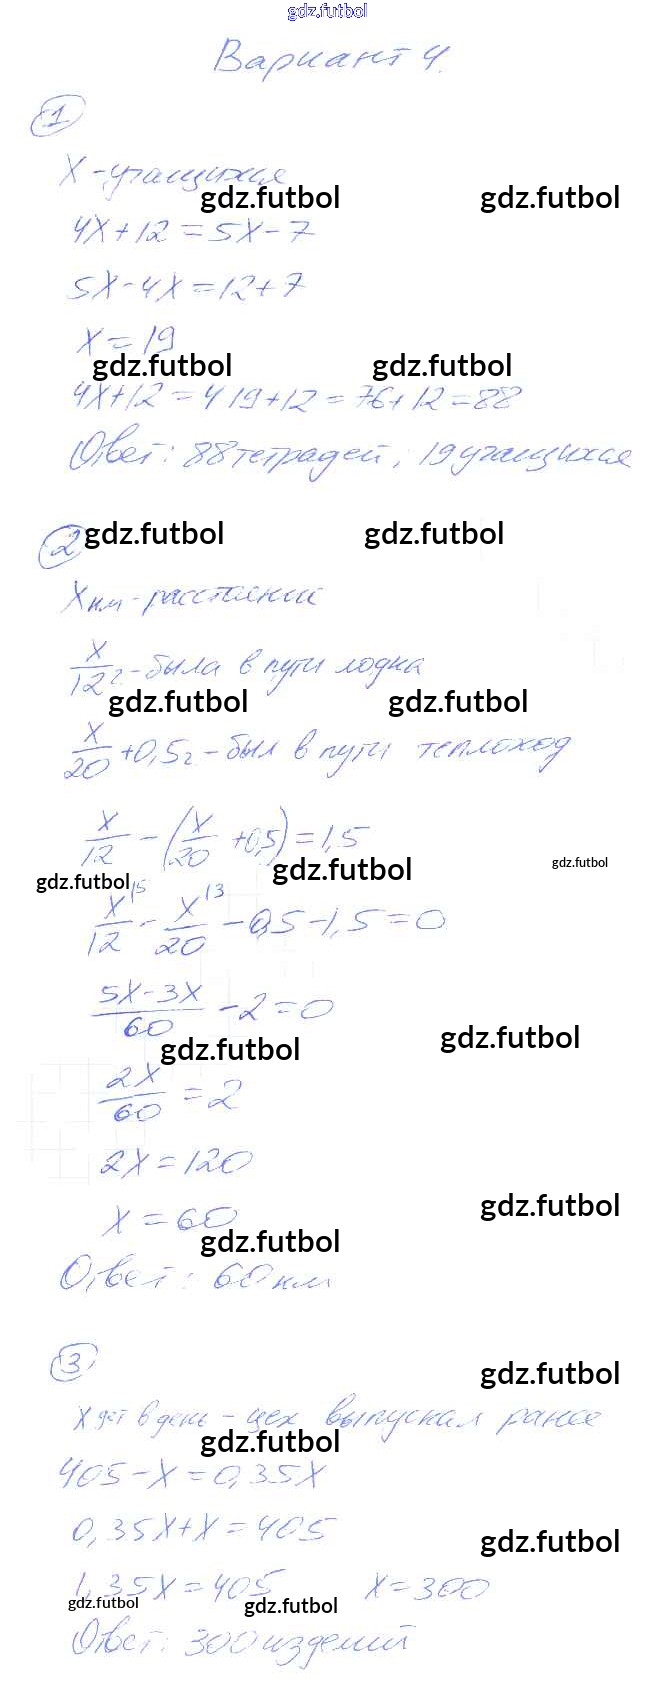 gdz.futbol
Вариант 4.
1
X - учащихся
gdz.futbol gdz.futbol
4X+12=5X-7
5X-4X=12+7
X=19
gdz.futbol gdz.futbol
4X+12=4 19+12=76+12=88
Ответ: 88 тетрадей; 19 учащихся
2 gdz.futbol gdz.futbol
X км - расстояний
X/12 ч - была в пути лодка
gdz.futbol gdz.futbol
X/20 +0,5 ч - был в пути теплоход
X/12 - (X/20 +0,5)=1,5
gdz.futbol gdz.futbol gdz.futbol
X\5/12 - X\3/20 -0,5-1,5=0
5X-3X/60 -2=0
gdz.futbol gdz.futbol
2X/60 =2
2X=120
X=60
gdz.futbol gdz.futbol
Ответ: 60 км
3
gdz.futbol
X дет в день - цех выпускал ранее
gdz.futbol
405-X=0,35X
0,35X+X=405
gdz.futbol
1,35X=405 X=300
gdz.futbol gdz.futbol
Ответ: 300 изделий